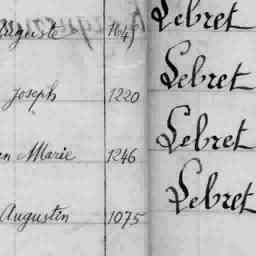 Auguste 1645 Lebret
Joseph 1220 Lebret
en Marie 1246 Lebret
Augustin 1075 Lebret